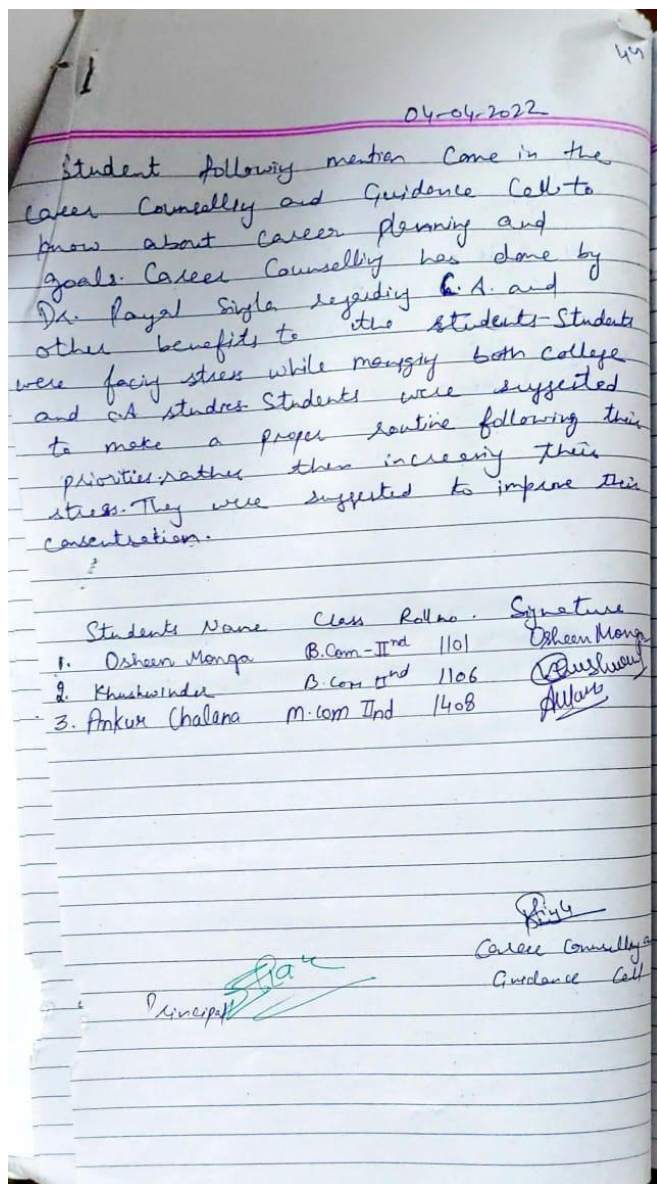 44
04-04-2022
Student following mention Come in the
Career Counselling and Guidance Cell to
know about career planning and
goals. Career Counselling has done by
Dr. Payal Singla regarding C.A. and
other benefits to the students-Students
were facing stress while managing both College
and CA studies. Students were suggested
to make a proper routine following their
priorities rather then increasing their
stress. They were suggested to improve their
consentration.
Students Name Class Roll no. Signature
1. Osheen Monga B.Com-IInd 1101 Osheen Monga
2. Khushwinder B.Com IInd 1106
3. Ankur Chalana M.com IInd 1408
Career Counselling
Guidance Cell
Principal